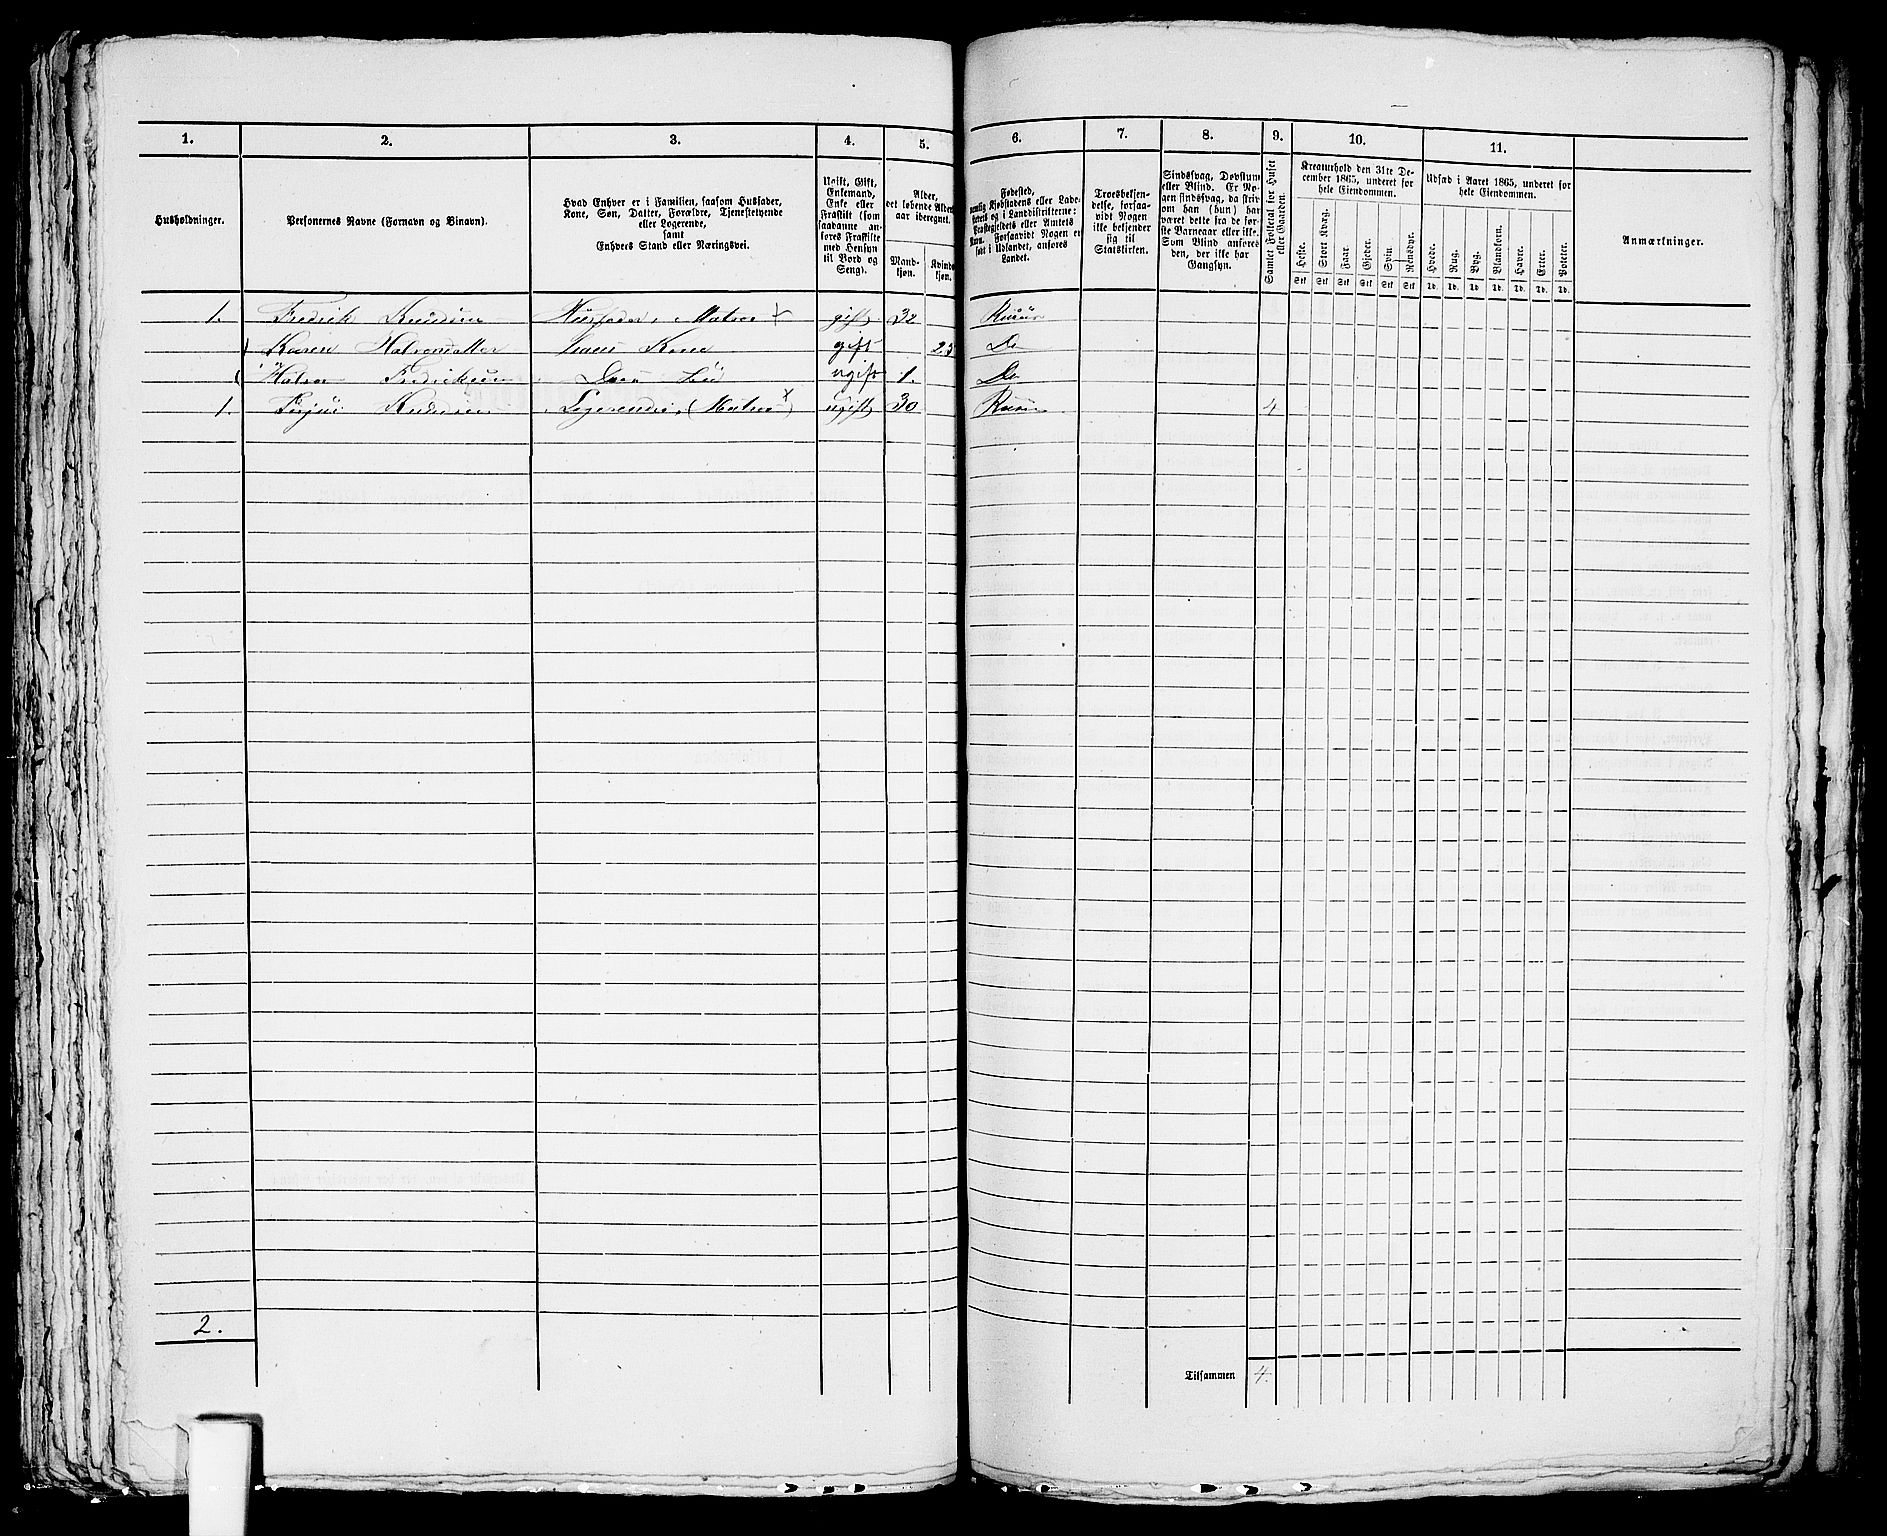 1. 2. 3. 4. 5. 6. 7. 8. 9. 10. 11.
Husholdninger.
Personernes Navne (Fornavn og Binavn).
Hvad Enhver er i Familien, saasom Husfader,
Kone, Søn, Datter, Forældre, Tjenestetyende
eller Logerende,
samt
Enhvers Stand eller Næringsvei.
Ugift, Gift,
Enkemand,
Enke eller
Fraskilt (som
saadanne an-
føres Fraskilte
med Hensyn
til Bord og
Seng).
Alder,
det løbende Alders-
aar iberegnet.
Mand-
kjøn.
Kvinde-
kjøn.
Fødested,
Landet.
Troesbekjen-
delse, forsaa-
vidt Nogen
ikke bekjender
sig til
Statskirken.
Sindssvag, Døvstum
eller Blind. Er No-
gen sindssvag, da skriv
om han (hun) har
været dette fra de før-
ste Barneaar eller ikke.
Som Blind anføres
den, der ikke har
Gangsyn.
Samlet Folketal for Huset
eller Gaarden.
Kreaturhold den 31te De-
cember 1865, underet for
hele Eiendommen.
Heste. Stort Kvæg. Faar. Gjeder. Sviin. Rensdyr.
Stk Stk Stk Stk Stk Stk
Udsæd i Aaret 1865, underet for
hele Eiendommen.
Hvede. Rug. Byg. Blandkorn. Havre. Erter. Poteter.
Td. Td. Td. Td. Td. Td. Td.
Anmærkninger.
1. Fredrik Knudsen Husfader, Matros gift 32
Karen Halvorsdatter hans Kone gift 25 Do
Halvor Fredriksen Deres ugift 1. Do
1. Logerende, (Matros) ugift 30 4
2.
Tilsammen 4.